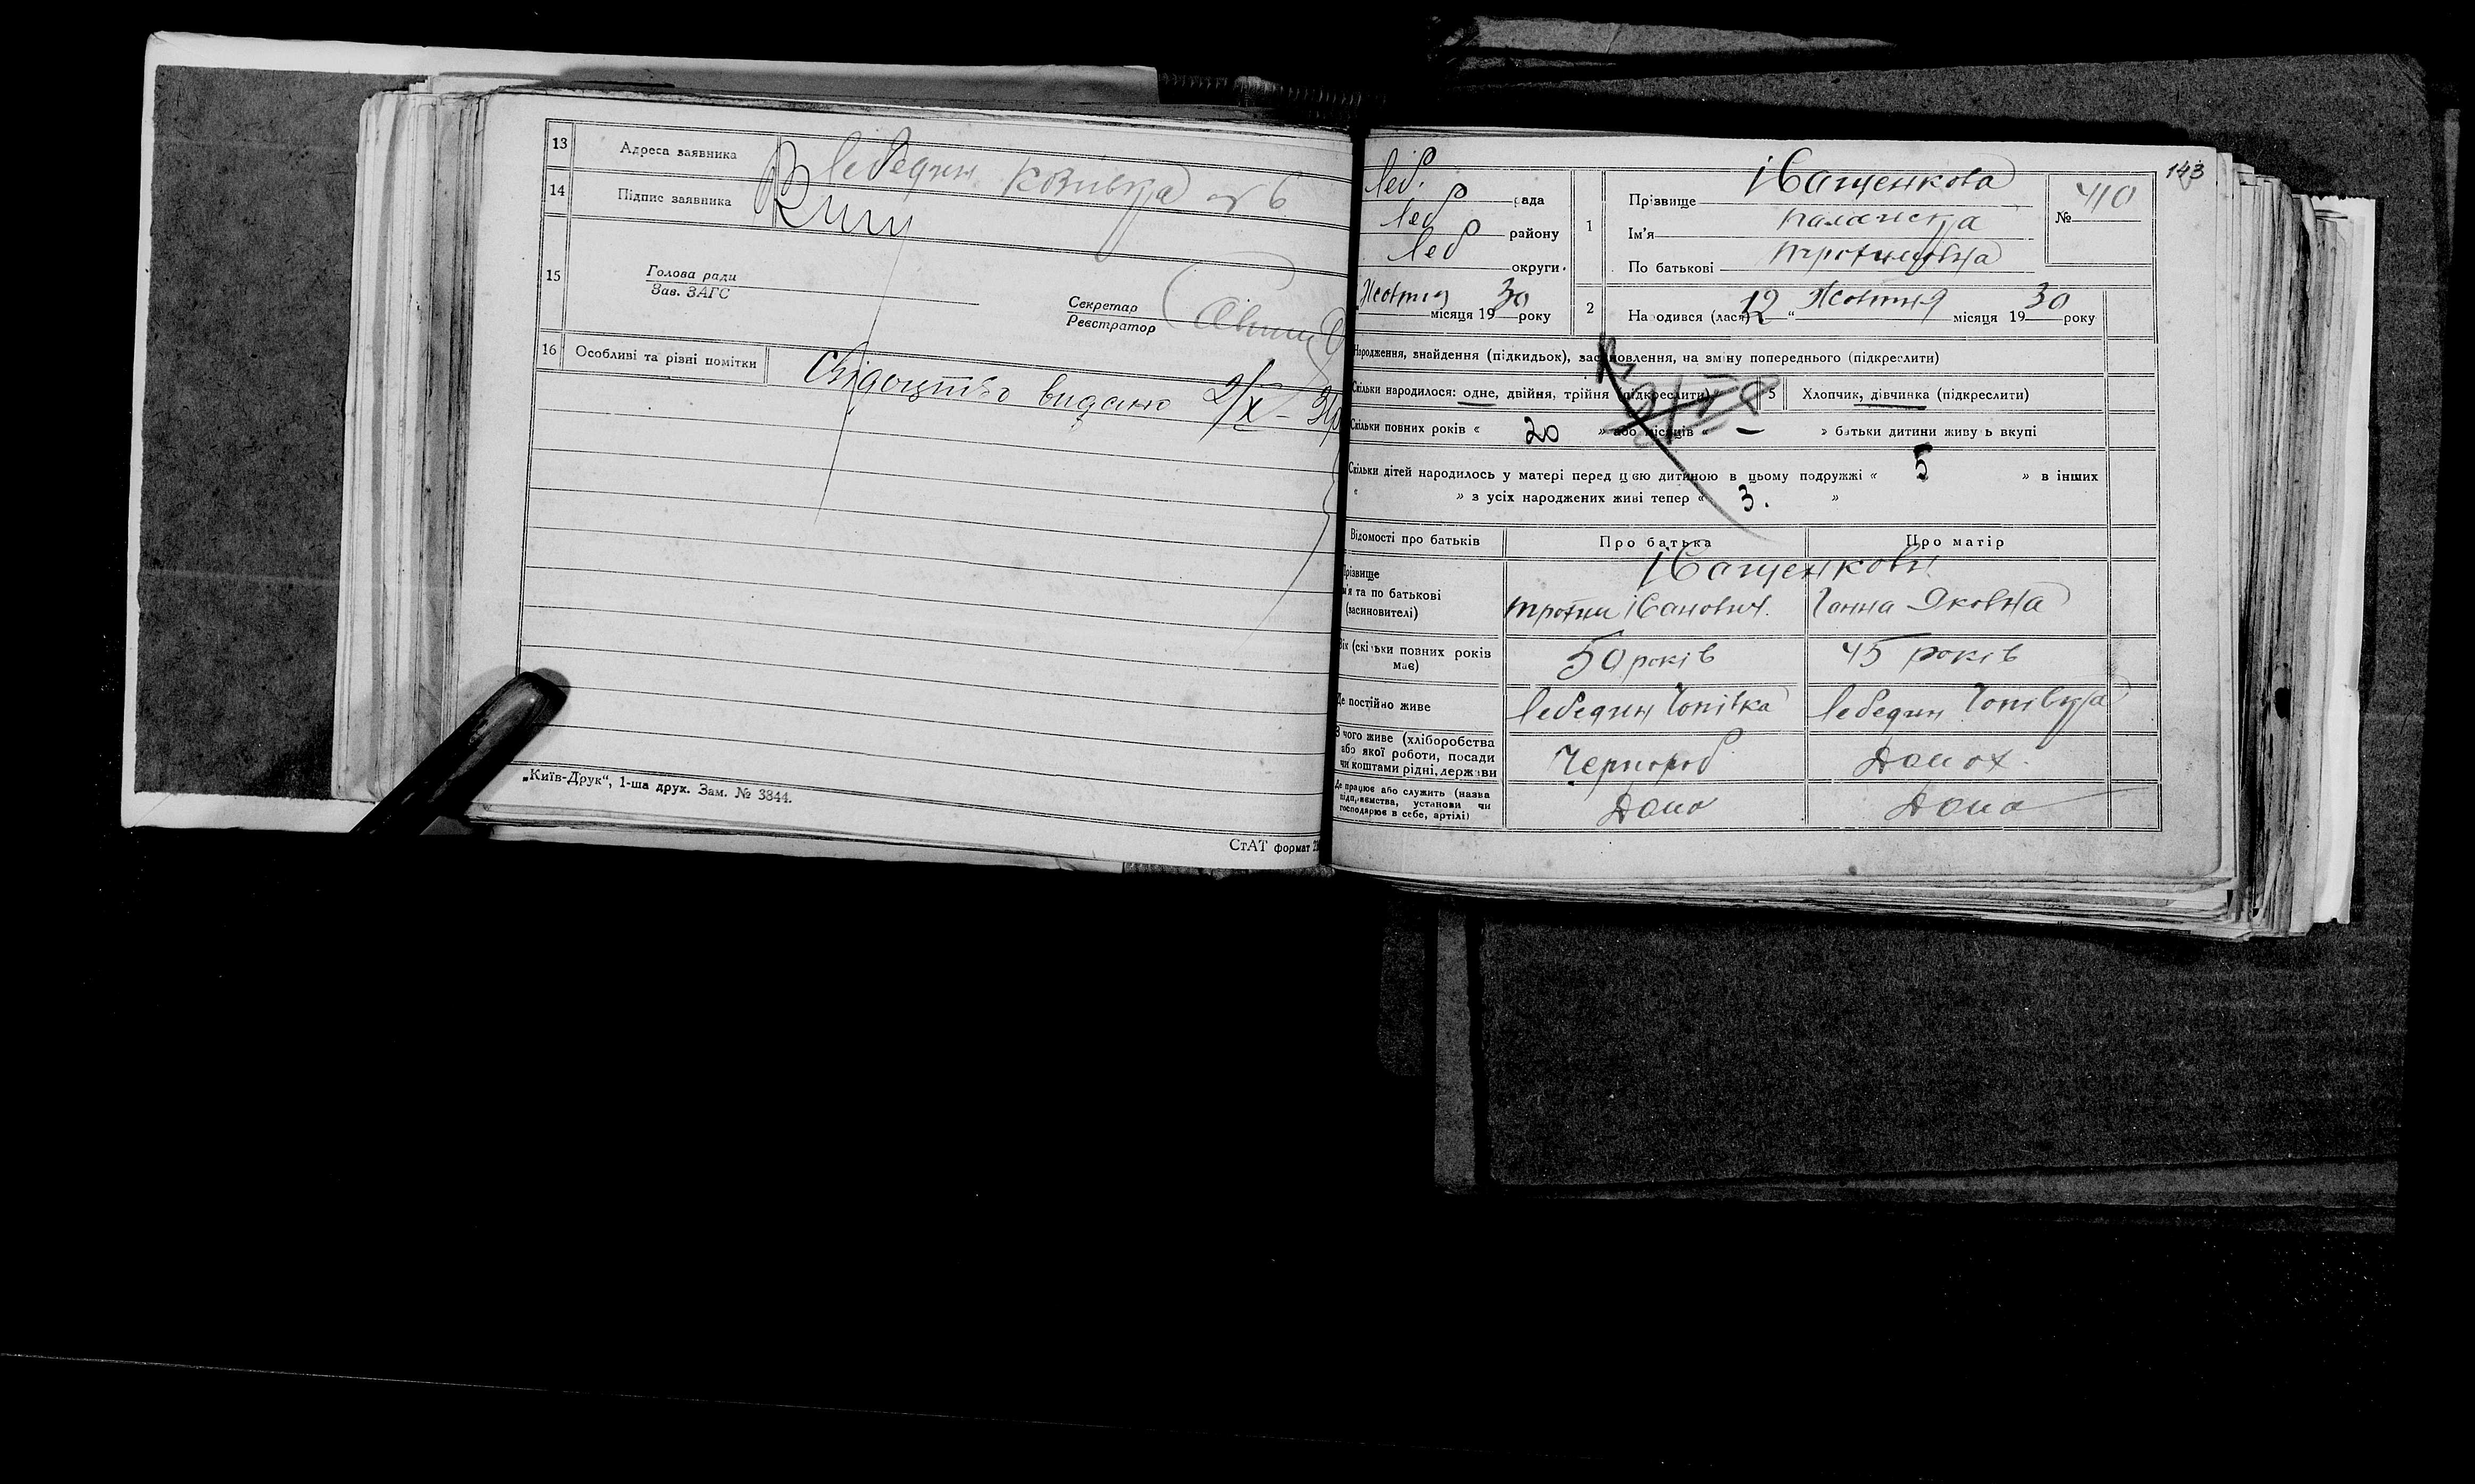 13 Адреса заявника Лебедин Козівка № 6
14 Підпис заявника
15 Голова ради
Зав. ЗАГС
Секретар
Реєстратор
16 Особливі та різні помітки Свідоцтво видано 2/X - 30
„Київ-Друк“, 1-ша друк. Зам. № 3844.
СтАТ формат
143
Леб. рада
Леб району
Леб округи.
Жовтня місяця 1930 року
1 Прізвище Іващенкова
Ім'я Палажка
По батькові Трохимовна
№ 410
2 Народився (лася) 12 „ Жовтня місяця 1930 року
Народження, знайдення (підкидьок), засиновлення, на зміну попереднього (підкреслити)
Скільки народилося: одне, двійня, трійня (підкреслити) 5 Хлопчик, дівчинка (підкреслити)
Скільки повних років « 20 » або місяців « — » батьки дитини живуть вкупі
Скільки дітей народилось у матері перед цією дитиною в цьому подружжі « 5 » в інших
« » з усіх народжених живі тепер « 3. »
Відомості про батьків Про батька Про матір
Прізвище Іващенкови
ім'я та по батькові
(засиновителі) Трохим Іванович. Ганна Яковна
Вік (скільки повних років має) 50 років 45 років
Де постійно живе Лебедин Лебедин
З чого живе (хліборобства
або якої роботи, посади
чи коштами рідні, держави Чернороб Домох.
Де працює або служить (назва
підприємства, установи чи
господарює в себе, артілі) Дома Дома